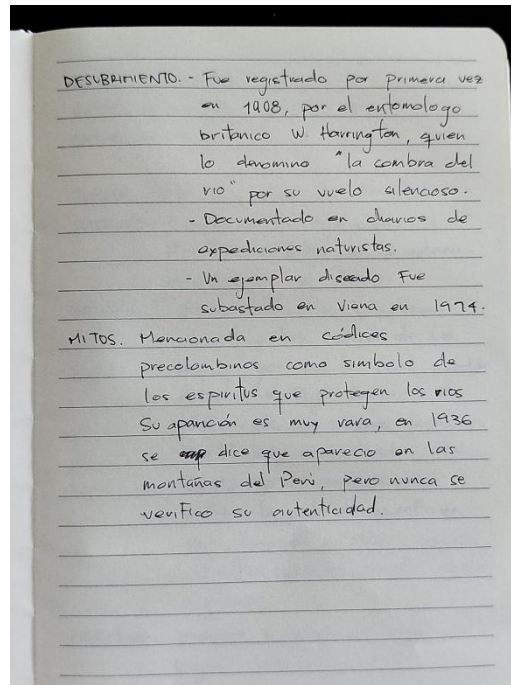 DESUBRIMIENTO. - Fue registrado por primera vez
en 1908, por el entomologo
britanico W. Harrington, quien
lo denomino "la combra del
rio" por su vuelo silencioso.
- Documentado en diarios de
expediciones naturistas.
- Un ejemplar disecado Fue
subastado en Viena en 1974.
MITOS. Mencionada en códices
precolombinos como simbolo de
los espiritus que protegen los rios
Su aparición es muy rara, en 1936
se dice que aparecio en las
montañas del Perú, pero nunca se
verifico su autenticidad.